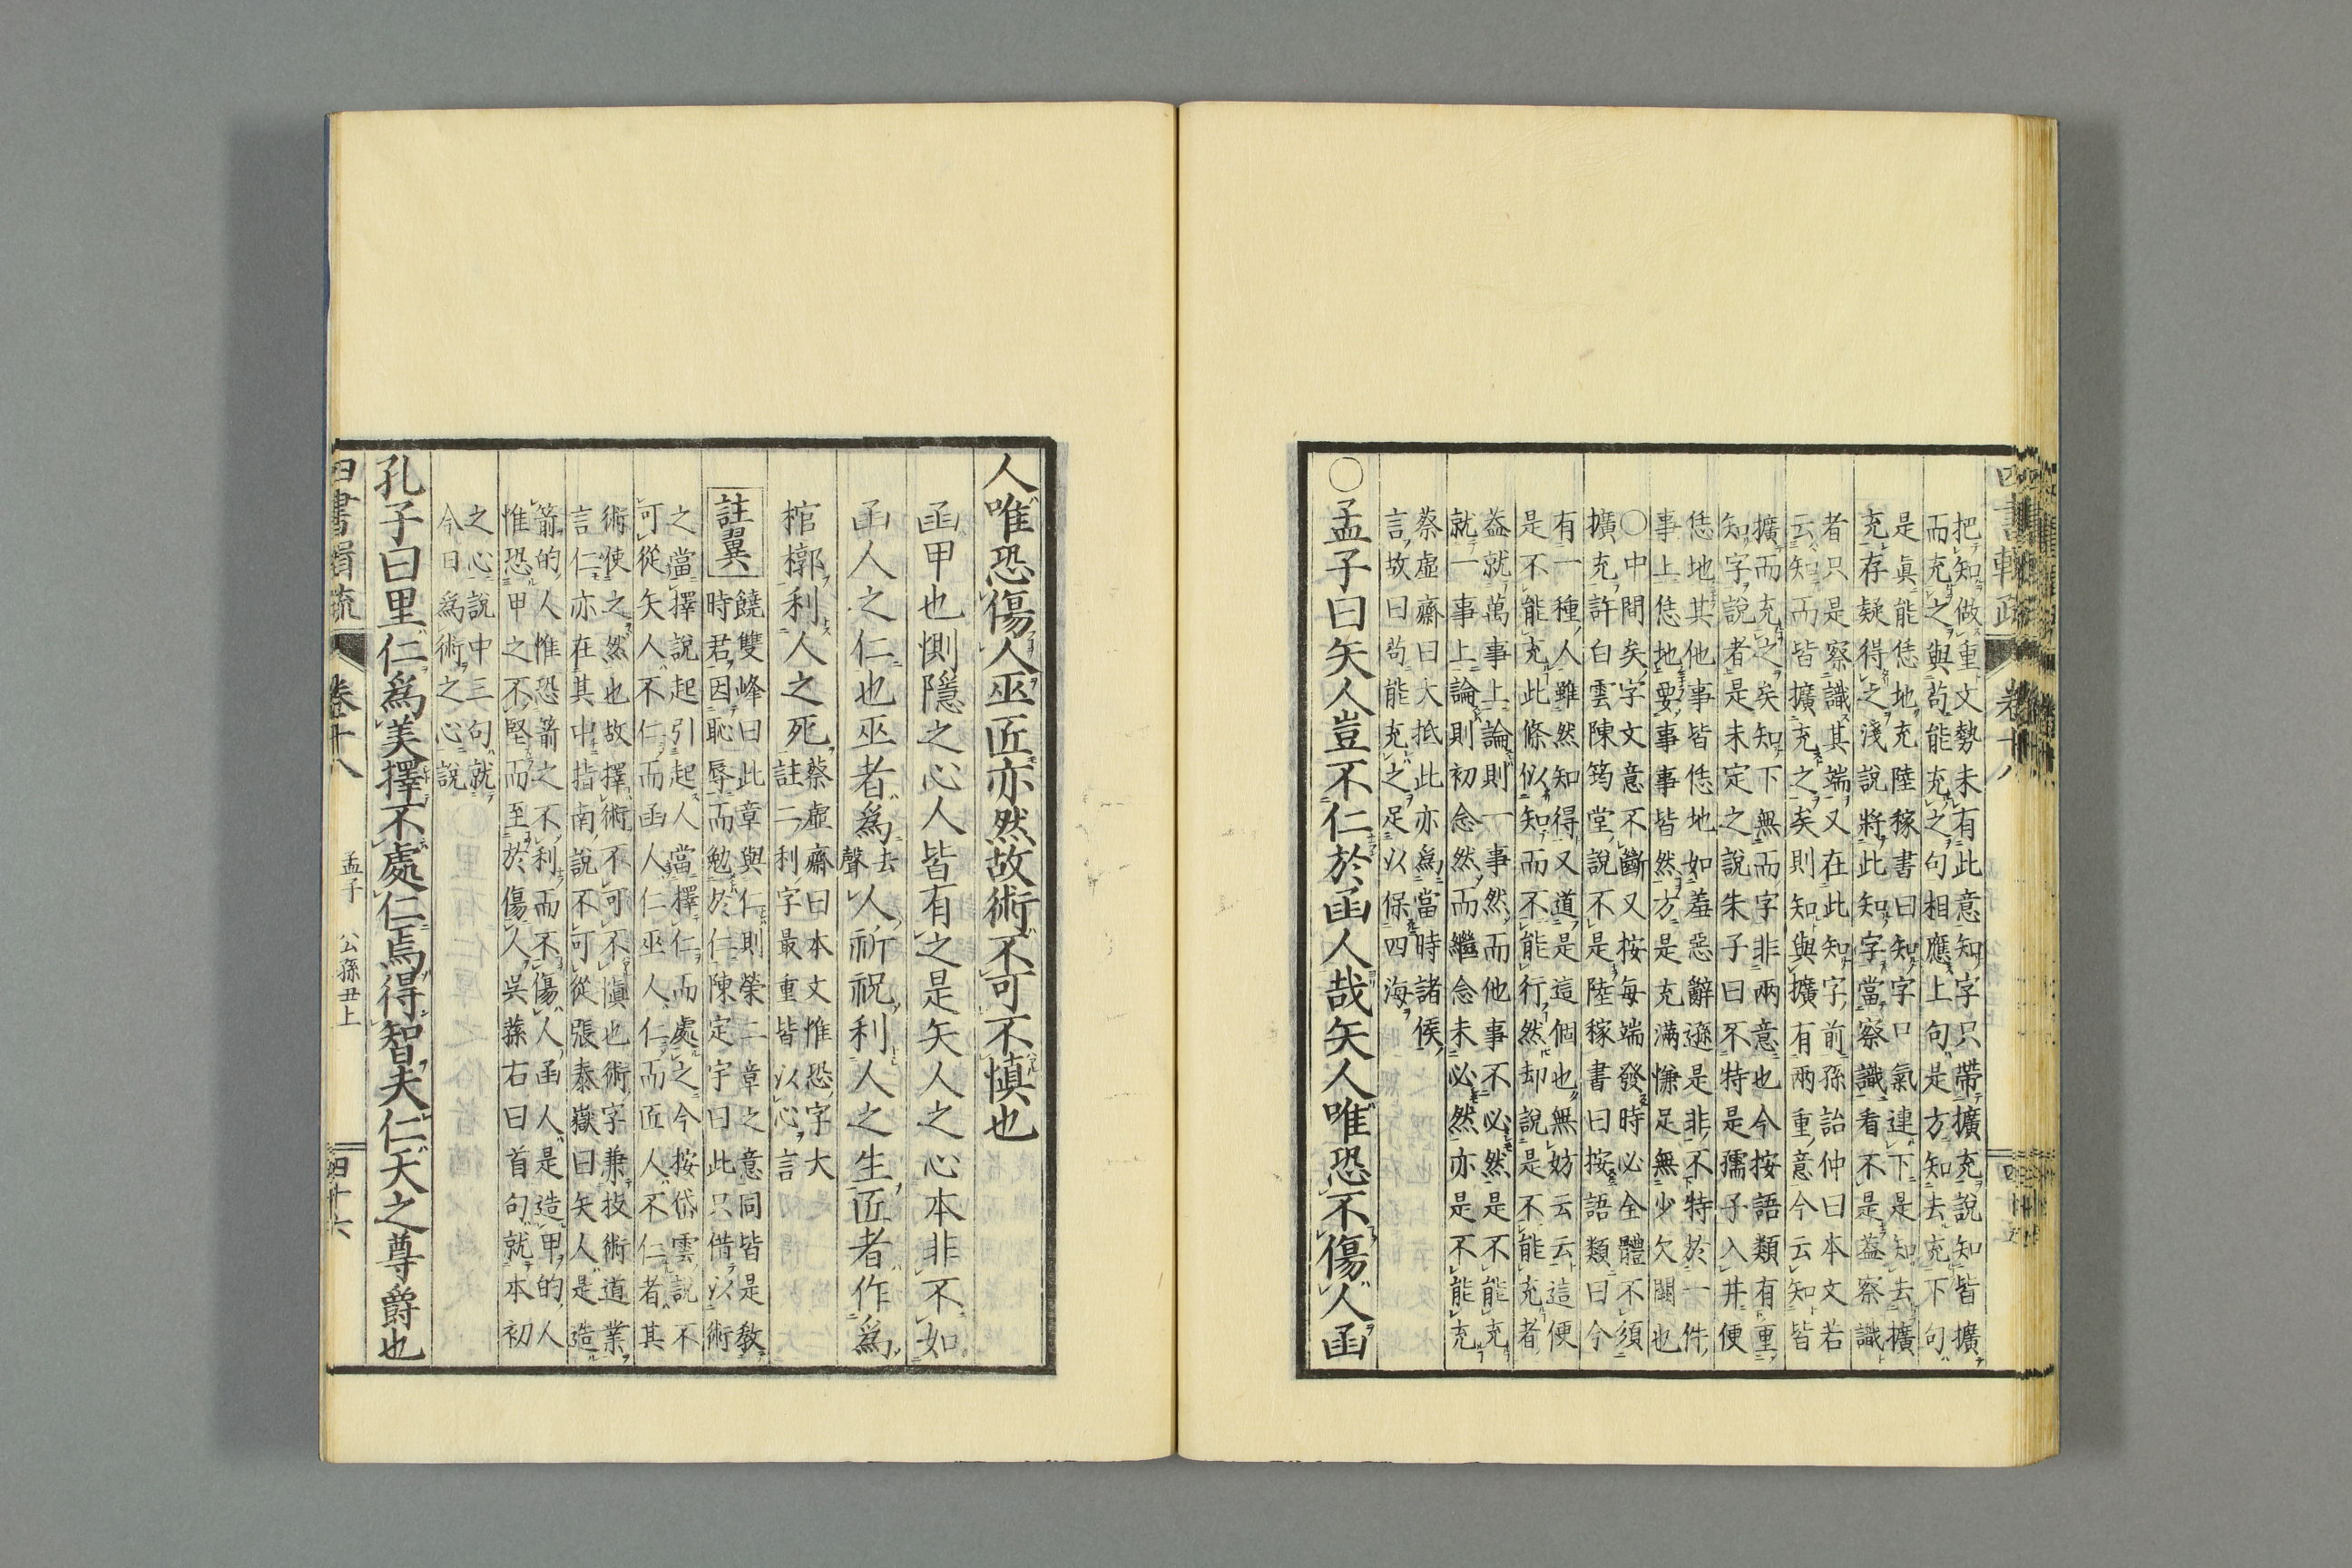 把知做重文勢未有此意知字只帶擴充說知皆擴
而充之與苟能充之句相應上句是方知去充下句
是眞能恁地充陸稼書曰知字口氣連下是知去擴
充存疑得之淺說將此知字當察識看不是蓋察識
者只是察識其端又在此知字前孫詒仲曰本文若
云知而皆擴充之矣則知與擴有兩重意今云知皆
擴而充之矣知下無而字非兩意也今按語類有重
知字說者是未定之說朱子曰不特是孺子入井便
恁地其他事皆恁地如羞惡辭遜是非不特於一件
事上恁地要事事皆然方是充滿慊足無少欠闕也
〇中間矣字文意不斷又按每端發時必全體不須
擴充許白雲陳筠堂說不是陸稼書曰按語類曰今
有一種人雖然知得又道是這個也無妨云云這便
是不能充此條似知而不能行然却說是不能充者
益就萬事上論則一事然而他事不必然是不能充
就一事上論則初念然而繼念未必然亦是不能充
蔡虛齋曰大抵此亦爲當時諸侯
言故曰苟能充之足以保四海
〇孟子曰矢人豈不仁於函人哉矢人唯恐不傷人函
人唯恐傷人巫匠亦然故術不可不愼也
函甲也惻隱之心人皆有之是矢人之心本非不如
函人之仁也巫者爲去聲人祈祝利人之生匠者作爲
棺槨利人之死蔡虛齋曰本文惟恐字大
註二利字最重皆以心言
註翼 饒雙峰曰此章與仁則榮二章之意同皆是敎
時君因恥辱而勉於仁陳定宇曰此只借以術
之當擇說起引起人當擇仁而處之今按岱雲說不
可從矢人不仁而函人仁巫人仁而匠人不仁者其
術使之然也故擇術不可不愼也術字兼技術道業
言仁亦在其中指南說不可從張泰嶽曰矢人是造
箭的人惟恐箭之不利而不傷人函人是造甲的人
惟恐甲之不堅而至於傷人吳蓀右曰首句就本初
之心說中三句就
今日爲術之心說
孔子曰里仁爲美擇不處仁焉得智夫仁天之尊爵也
四書輯疏 卷十八 孟子 公孫丑上 四十六